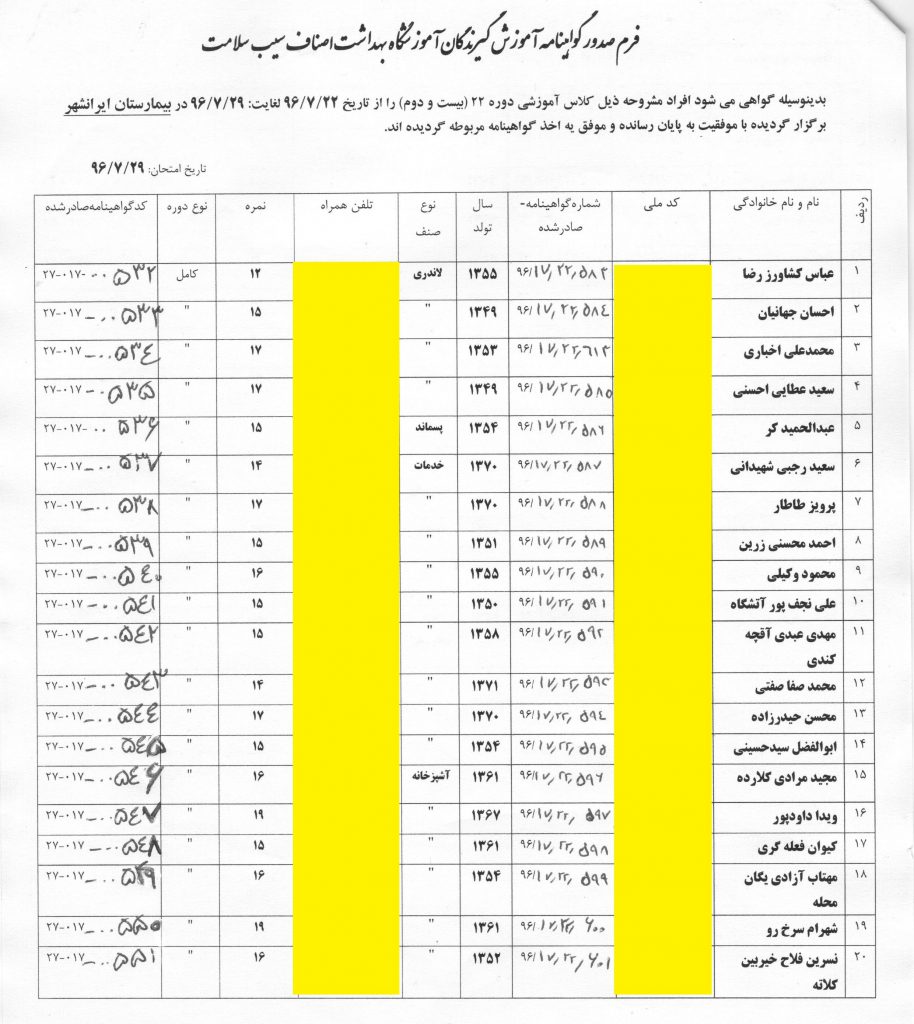 فرم صدور گواهینامه آموزش گیرندگان آموزشگاه بهداشت اصناف سیب سلامت
بدینوسیله گواهی می شود افراد مشروحه ذیل کلاس آموزشی دوره ۲۲ (بیست و دوم) را از تاریخ ۹۶/۷/۲۲ لغایت: ۹۶/۷/۲۹ در بیمارستان ایرانشهر
برگزار گردیده با موفقیت به پایان رسانده و موفق به اخذ گواهینامه مربوطه گردیده اند.
تاریخ امتحان: ۹۶/۷/۲۹
ردیف نام و نام خانوادگی کد ملی شماره گواهینامه- صادرشده سال تولد نوع صنف تلفن همراه نمره نوع دوره کدگواهینامه صادرشده
۱ عباس کشاورز رضا ۹۶/۱۷٫۲۲٫۵۸۳ ۱۳۵۵ لاندری ۱۲ کامل ۲۷-۰۱۷-۰۰۵۳۲
۲ احسان جهانیان ۹۶/۱۷٫۲۲٫۵۸۴ ۱۳۴۹ " ۱۵ " ۲۷-۰۱۷-۰۰۵۳۳
۳ محمدعلی اخباری ۹۶/۱۷٫۲۲٫۶۱۳ ۱۳۵۳ " ۱۷ " ۲۷-۰۱۷-۰۰۵۳۴
۴ سعید عطایی احسنی ۹۶/۱۷٫۲۲٫۵۸۵ ۱۳۴۹ " ۱۷ " ۲۷-۰۱۷-۰۰۵۳۵
۵ عبدالحمید کر ۹۶/۱۷٫۲۲٫۵۸۶ ۱۳۵۴ پسماند ۱۵ " ۲۷-۰۱۷-۰۰۵۳۶
۶ سعید رجبی شهیدانی ۹۶/۱۷٫۲۲٫۵۸۷ ۱۳۷۰ خدمات ۱۴ " ۲۷-۰۱۷-۰۰۵۳۷
۷ پرویز طاطار ۹۶/۱۷٫۲۲٫۵۸۸ ۱۳۷۰ " ۱۷ " ۲۷-۰۱۷-۰۰۵۳۸
۸ احمد محسنی زرین ۹۶/۱۷٫۲۲٫۵۸۹ ۱۳۵۱ " ۱۵ " ۲۷-۰۱۷-۰۰۵۳۹
۹ محمود وکیلی ۹۶/۱۷٫۲۲٫۵۹۰ ۱۳۵۵ " ۱۶ " ۲۷-۰۱۷-۰۰۵۴۰
۱۰ علی نجف پور آتشگاه ۹۶/۱۷٫۲۲٫۵۹۱ ۱۳۵۰ " ۱۵ " ۲۷-۰۱۷-۰۰۵۴۱
۱۱ مهدی عبدی آقچه کندی ۹۶/۱۷٫۲۲٫۵۹۲ ۱۳۵۸ " ۱۵ " ۲۷-۰۱۷-۰۰۵۴۲
۱۲ محمد صفا صفتی ۹۶/۱۷٫۲۲٫۵۹۳ ۱۳۷۱ " ۱۴ " ۲۷-۰۱۷-۰۰۵۴۳
۱۳ محسن حیدرزاده ۹۶/۱۷٫۲۲٫۵۹۴ ۱۳۷۰ " ۱۷ " ۲۷-۰۱۷-۰۰۵۴۴
۱۴ ابوالفضل سیدحسینی ۹۶/۱۷٫۲۲٫۵۹۵ ۱۳۵۴ " ۱۵ " ۲۷-۰۱۷-۰۰۵۴۵
۱۵ مجید مرادی کلارده ۹۶/۱۷٫۲۲٫۵۹۶ ۱۳۶۱ آشپزخانه ۱۶ " ۲۷-۰۱۷-۰۰۵۴۶
۱۶ ویدا داودپور ۹۶/۱۷٫۲۲٫۵۹۷ ۱۳۶۷ " ۱۹ " ۲۷-۰۱۷-۰۰۵۴۷
۱۷ کیوان فعله گری ۹۶/۱۷٫۲۲٫۵۹۸ ۱۳۶۱ " ۱۵ " ۲۷-۰۱۷-۰۰۵۴۸
۱۸ مهتاب آزادی یگان محله ۹۶/۱۷٫۲۲٫۵۹۹ ۱۳۵۴ " ۱۶ " ۲۷-۰۱۷-۰۰۵۴۹
۱۹ شهرام سرخ رو ۹۶/۱۷٫۲۲٫۶۰۰ ۱۳۶۱ " ۱۹ " ۲۷-۰۱۷-۰۰۵۵۰
۲۰ نسرین فلاح خیربین کلاته ۹۶/۱۷٫۲۲٫۶۰۱ ۱۳۵۲ " ۱۶ " ۲۷-۰۱۷-۰۰۵۵۱